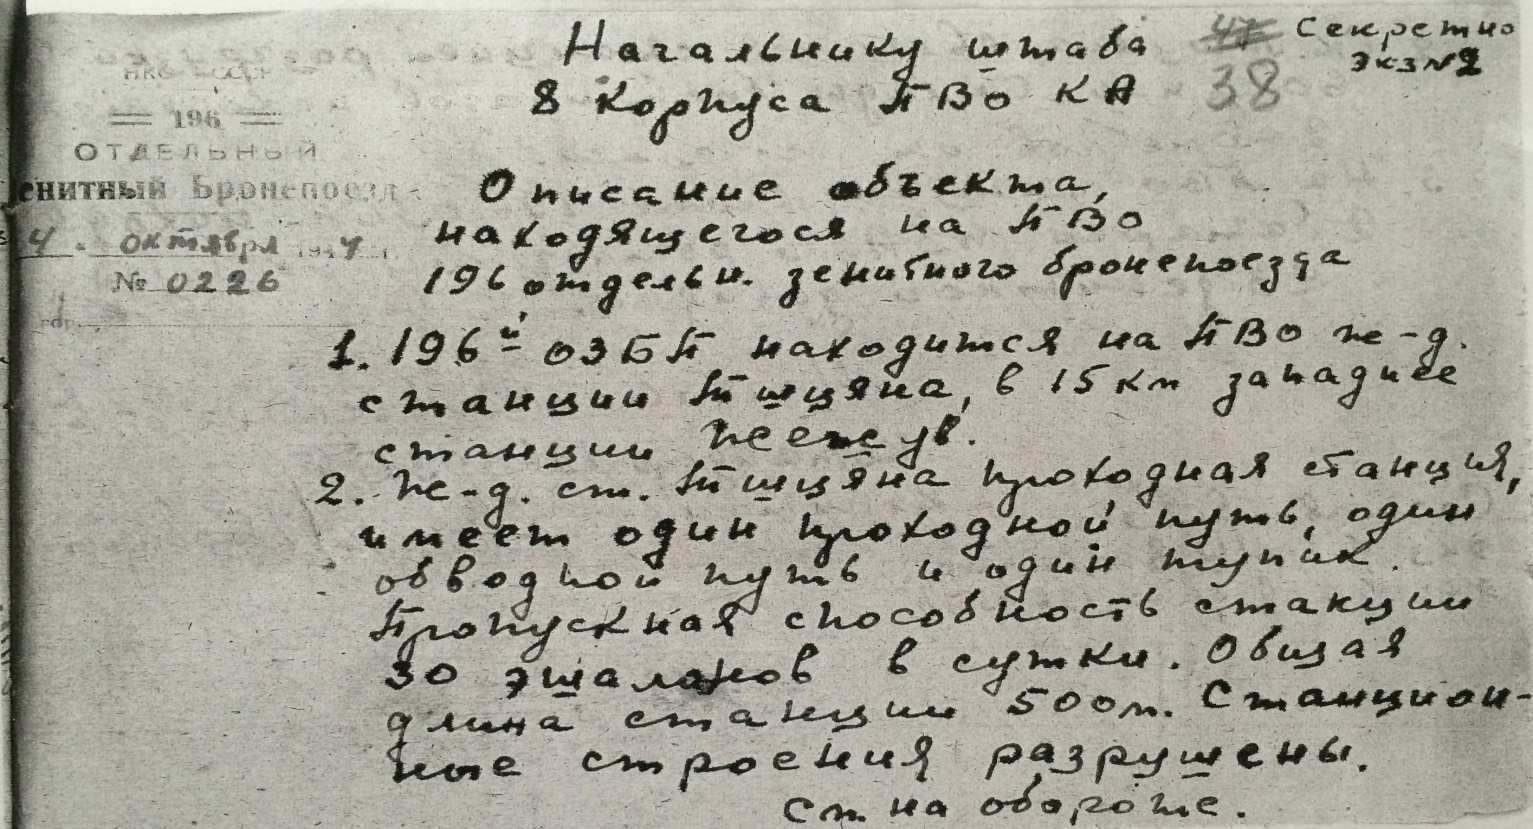 Начальнику штаба
8 Корпуса ПВО КА
47
38
Секретно
экз №2
НКО СССР
196
ОТДЕЛЬНЫЙ
енитный Бронепоезд
4. октября 1944 г.
№ 0226
Описание объекта,
находящегося на ПВО
196 отдельн. зенитного бронепоезда
1. 196й ОЗБП находится на ПВО ж-д.
станции Тшцяна, в 15 км западнее
станции Жешув.
2. Ж-д. ст. Тшцяна проходная станция,
имеет один проходной путь, один
обводной путь и один тупик.
Пропускная способность станции
30 эшалонов в сутки. Общая
длина станции 500 м. Станцион-
ные строения разрушены.
См на обороте.